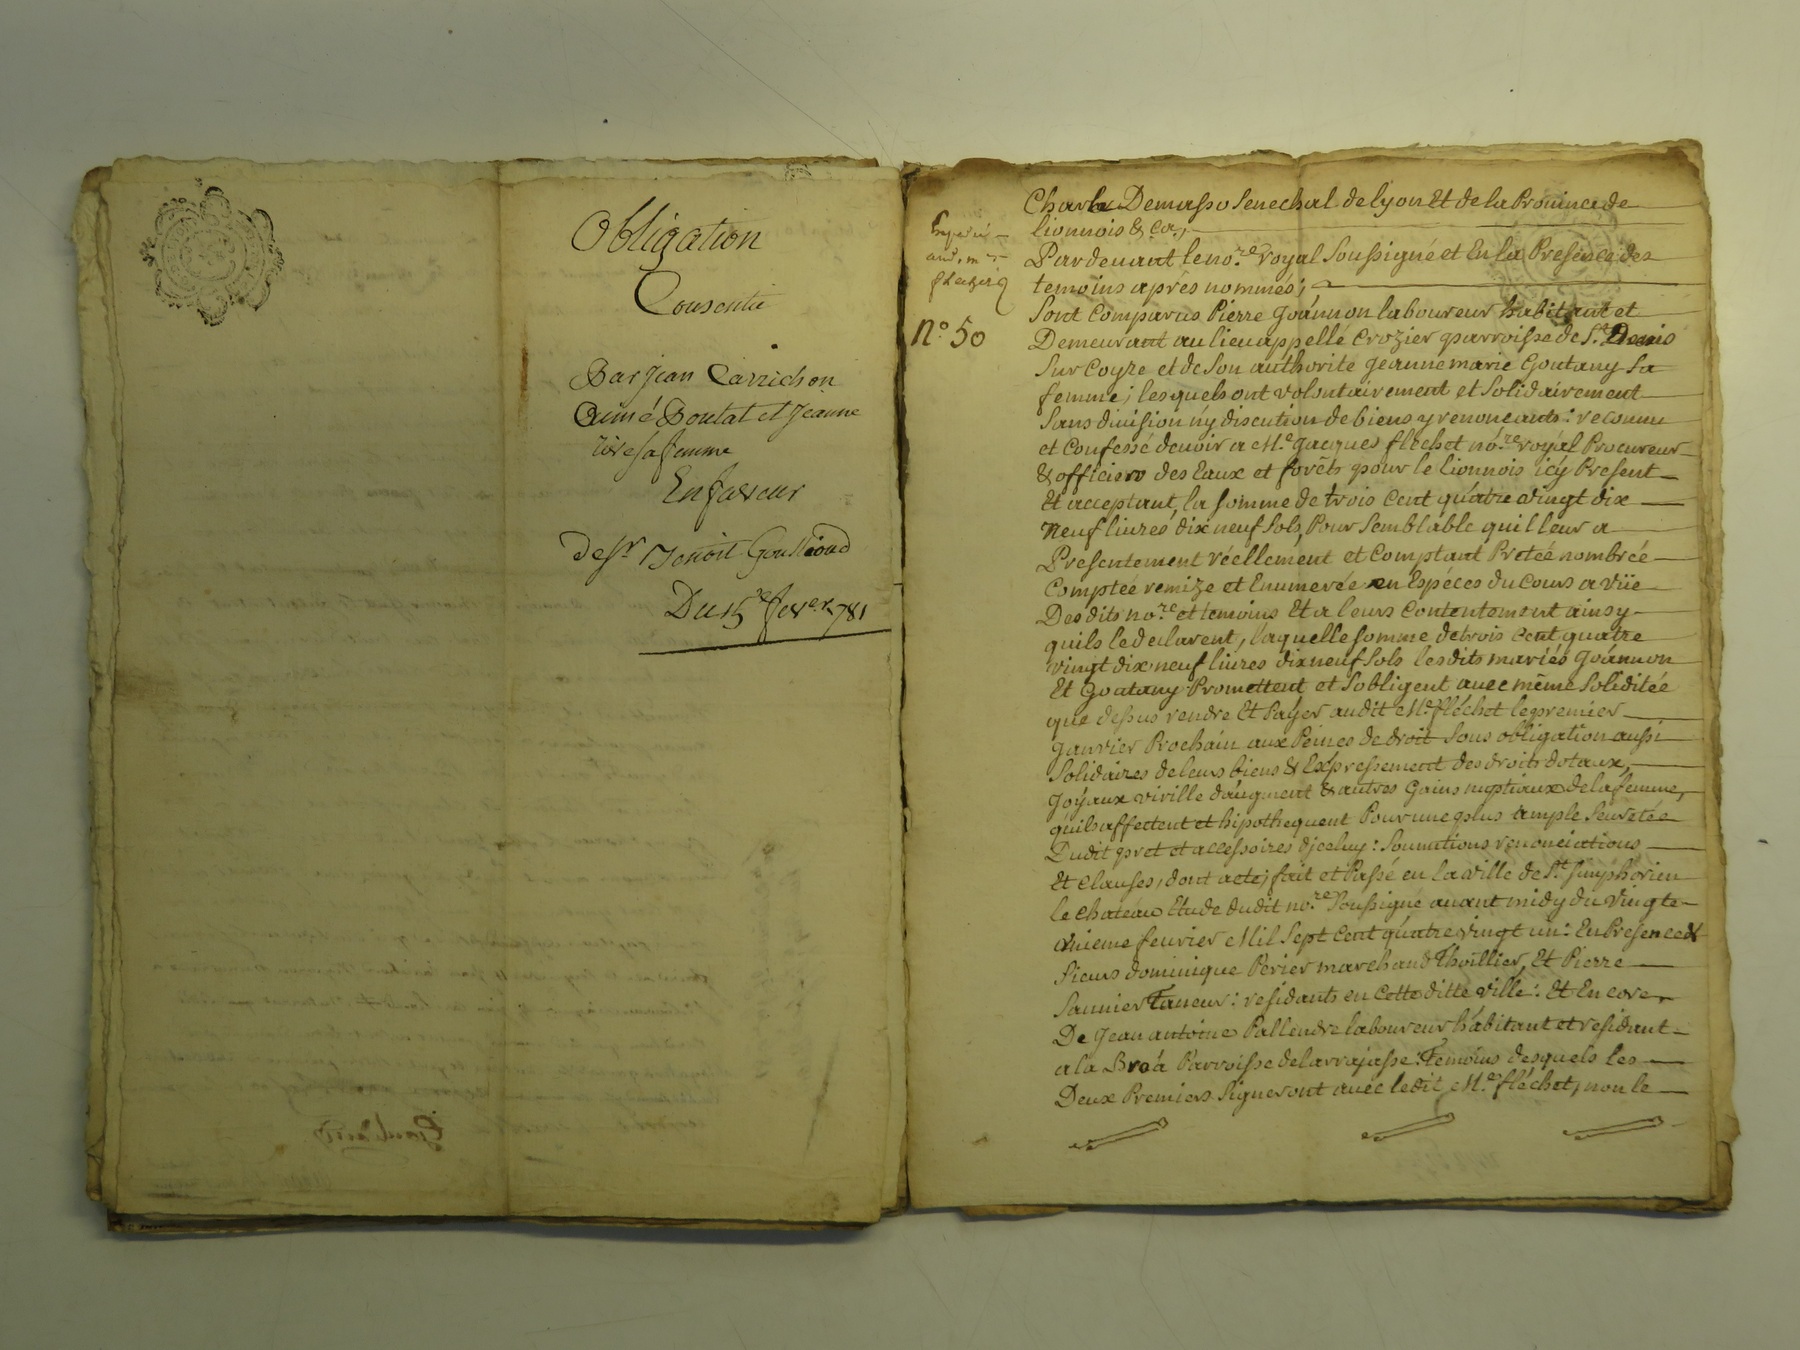 Obligation
Consentie
Par Jean Carrichon
Aimé Poulat et Jeanne
sa femme
En faveur
de Sr. Benoit Goutland
Du 15e fever 781
N.º 50
Charle Demasso Senechal de lyon Et de la Prouince de
lionnois & ca;
Pardeuant le no.re royal Soussigné et En la Presence des
temoins aprés nommés;
Sont Comparus Pierre goánnon laboureur habitant et
Demeurant au lieu appellé Crozier parroisse de S.t Denis
Sur Coyze et de Son authorité Jeanne marie Goutany Sa
femme; lesquels ont volontairement et Solidairement
Sans diuision ný discution de biens y renoncants: reconnu
et Confessé deuoir a M.e Jacques flechet no.re royal Procureur
& officiers des Eaux et forêts pour le lionnois icý Present
Et acceptant, la somme de trois Cent quatre vingt dix
Neuf liures dix neuf Sols, Pour Semblable quil leur a
Presentement réellement et Comptant Pretée nombrée
Comptée remize et Enumerée en Espéces du Cours a vüe
Desdits no.re et temoins Et a leurs Contentement ainsy
quils le declarent, laquelle somme de trois Cent quatre
vingt dix neuf liures dix neuf Sols lesdits mariés goánnon
Et Goatany Promettent et Sobligent auec même Soliditée
que dessus rendre Et Payer audit M.e fléchet le premier
Janvier Prochain aux Peines de droit Sous obligation aussi
Solidaires de leurs biens & Expressement des droits dotaux,
Joýaux virille daugment & autres Gains nuptiaux de la femme,
quils affectent et hipothequent Pour une plus ample Seuretée
Dudit pret et accessoires djceluy: Soumations renonciations
Et Clauses, dont acte; fait et Passé en la ville de S.t Simphorien
le Chateau Etude dudit no.re Soussigné auant midy du Vingte
uniéme feurier Mil Sept Cent quatre vingt un: En Presence d
Sieurs dominique Perier marchand Thoillier, Et Pierre
Saunier Taneur: residants en Cette ditte ville: Et Encore
De Jean antoine Pallendre laboureur habitant et residant
a la Broá Parroisse de larrajasse: Temoins desquels les
Deux Premiers Signeront auec ledit M.e fléchet, non le